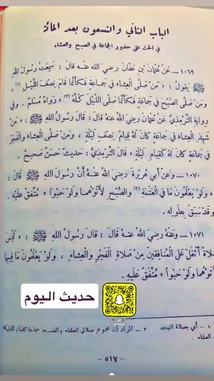 الباب الثاني والتسعون بعد المائة
في الحث على حضور الجماعة في الصبح والعشاء
١٠٦٩ - عَنْ عُثْمَانَ بْنِ عَفَّانَ رضي الله عنه قَالَ : سَمِعْتُ رَسُولَ اللَّهِ
ﷺ يَقُولُ : « مَنْ صَلَّى الْعِشَاءَ فِي جَمَاعَةٍ فَكَأَنَّمَا قَامَ نِصْفَ اللَّيْلِ (١)
وَمَنْ صَلَّى الصُّبْحَ فِي جَمَاعَةٍ فَكَأَنَّمَا صَلَّى اللَّيْلَ كُلَّهُ » رَوَاهُ مُسْلِمٌ . وفي
رواية الترمذي عَنْ عُثْمَانَ رضي الله عنه قال : قال رسول الله ﷺ : « مَنْ
شَهِدَ الْعِشَاءَ فِي جَمَاعَةٍ كَانَ لَهُ قِيَامُ نِصْفِ لَيْلَةٍ ، وَمَنْ صَلَّى الْعِشَاءَ وَالْفَجْرَ
فِي جَمَاعَةٍ كَانَ لَهُ كَقِيَامِ لَيْلَةٍ » قَالَ التِّرْمِذِيُّ : حَدِيثٌ حَسَنٌ صَحِيحٌ .
١٠٧٠ - وَعَنْ أَبِي هُرَيْرَةَ رَضِيَ اللَّهُ عَنْهُ أَنَّ رَسُولَ اللَّهِ ﷺ قَالَ :
« وَلَوْ يَعْلَمُونَ مَا فِي الْعَتَمَةِ وَالصُّبْحِ لَأَتَوْهُمَا وَلَوْ حَبْوًا » مُتَّفَقٌ عَلَيْهِ .
وَقَدْ سَبَقَ بِطُولِهِ .
١٠٧١ - وَعَنْهُ رَضِيَ اللَّهُ عَنْهُ قَالَ : قَالَ رَسُولُ اللَّهِ ﷺ : « لَيْسَ
صَلَاةٌ أَثْقَلَ عَلَى الْمُنَافِقِينَ مِنْ صَلَاةِ الْفَجْرِ وَالْعِشَاءِ ، وَلَوْ يَعْلَمُونَ مَا فِيهِمَا
لَأَتَوْهُمَا وَلَوْ حَبْوًا » مُتَّفَقٌ عَلَيْهِ .
حديث اليوم
١ - أي بصلاة التهجد
٢ - المراد أن مجموع صلاتي العشاء
العشاء
٥١٧